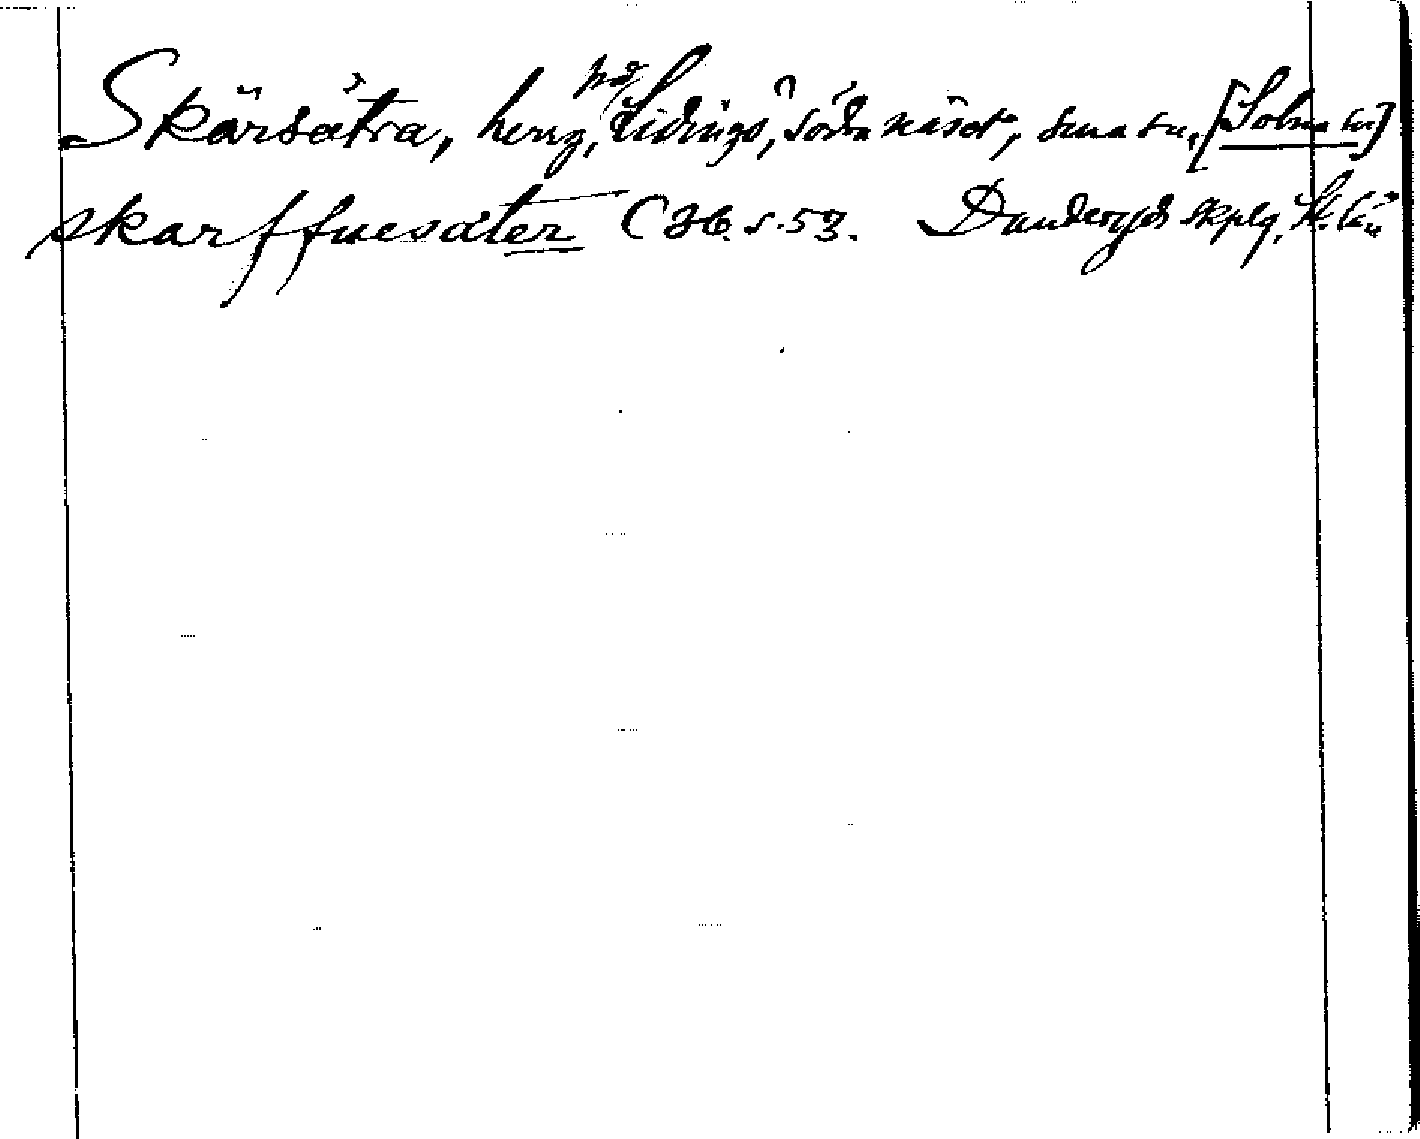 Skärsätra, herrg, på Lidingö, södra näset, sma sn, [Solna sn]
skarffuesäter C 36. s. 53. Danderyds skplg, St. län